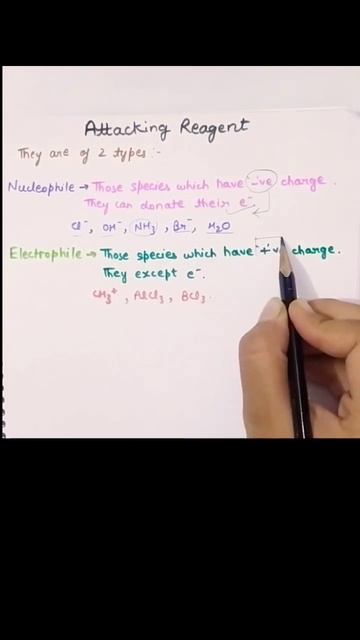 Attacking Reagent
They are of 2 types :-
Nucleophile → Those species which have -ve charge.
They can donate their e⁻.
Cl⁻, OH⁻, NH3, Br⁻, H2O
Electrophile → Those species which have +ve charge.
They except e⁻.
CH3⁺, AlCl3, BCl3.